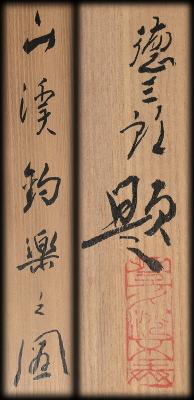 山溪釣樂之圖
德三郎題